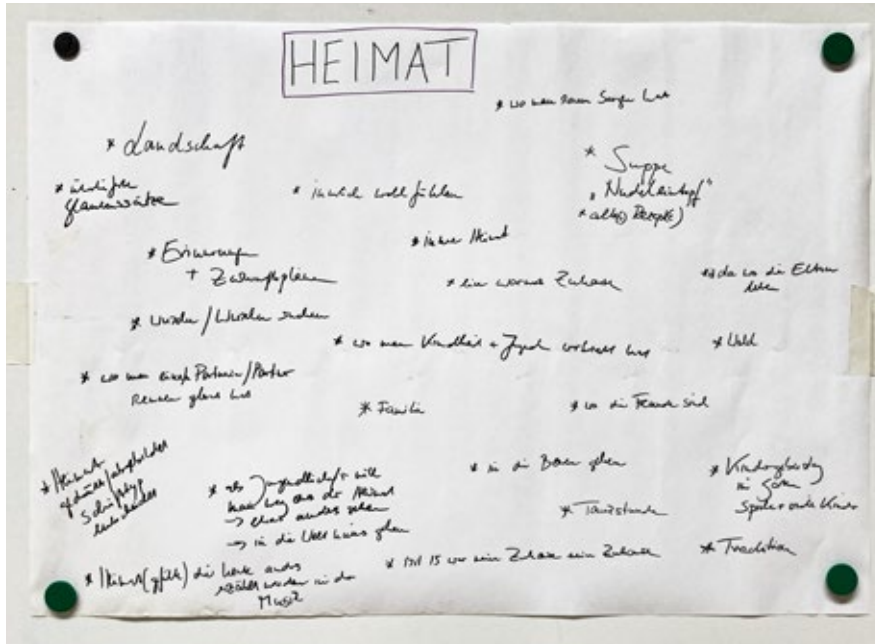 HEIMAT
* wo man seine Sorgen hat
* Landschaft
* Suppe
„Nudeleintopf“
* alte(s) Rezept(e)
* wohlfühlen
* Erinnerungen
+ Zukunftspläne
* innere Heimat
* ein warmes Zuhause
* da wo die Eltern
leben
* Wurzeln / Wurzeln suchen
* wo man Kindheit + Jugend verbracht hat
* Wald
* wo man eine Partnerin/Partner
kennen gelernt hat
* Familie
* wo die Freunde sind
* Heimat
* als Jugendliche/r will
man weg aus der Heimat
→ etwas anderes sehen
→ in die Welt hinaus gehen
* in die
gehen
* Kindergeburtstag
im Garten
später
Kinder
* Tanzstunde
* Heimat(gefühle) die heute anders
erzählt werden in der
Musik
* mit 15 war mein Zuhause kein Zuhause
* Tradition